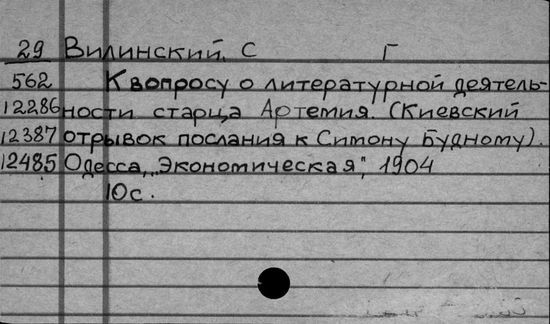 29 Вилинский. С Г
562 К вопросу о литературной деятель-
12286 ности старца Артемия. (Киевский
12387 отрывок послания к Симону Будному).
12485 Одесса, "Экономическая", 1904
10с.